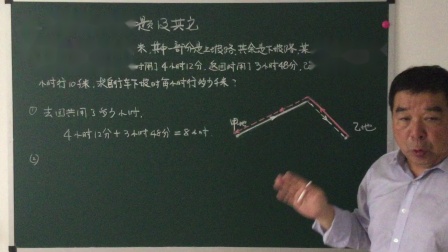 题
米,其中一部分是上坡路,其余是下坡路,某
时用了4小时12分,返回时用了3小时48分,已
小时行10千米,求自行车下坡时每小时行多少千米?
① 去回共用了多少小时,
4小时12分+3小时48分=8小时
②
甲地
乙地